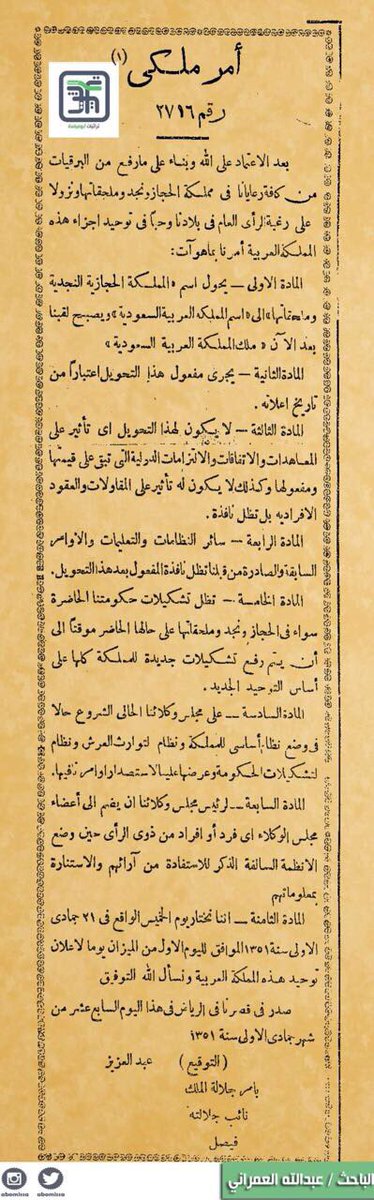 أمر ملكى (١)
رقم ٢٧١٦
بعد الاعتماد على الله وبناء على مارفع من البرقيات
من كافة رعايانا فى مملكة الحجاز ونجد وملحقاتها ونزولا
على رغبة الرأى العام فى بلادنا وحبا فى توحيد اجزاء هذه
المملكة العربية أمرنا بما هو آت :
المادة الاولى — يحول اسم «المملكة الحجازية النجدية
وملحقاتها» الى «اسم المملكه العربية السعودية» ويصبح لقبنا
بعد الآن «ملك المملكة العربية السعودية»
المادة الثانية — يجرى مفعول هذا التحويل اعتبارا من
تاريخ اعلانه .
المادة الثالثة — لا يكون لهذا التحويل اى تأثير على
المعاهدات والاتفاقات والالتزامات الدولية التى تبقى على قيمتها
ومفعولها وكذلك لا يكون له تأثير على المقاولات والعقود
الافراديه بل تظل نافذة .
المادة الرابعة — سائر النظامات والتعليمات والاوامر
السابقة والصادرة من قبلنا تظل نافذة المفعول بعد هذا التحويل .
المادة الخامسة — تظل تشكيلات حكومتنا الحاضرة
سواء فى الحجاز ونجد وملحقاتها على حالها الحاضر موقتا الى
أن يتم وضع تشكيلات جديدة للمملكة كلها على
أساس التوحيد الجديد .
المادة السادسة — على مجلس وكلائنا الحالى الشروع حالا
فى وضع نظام أساسى للمملكة ونظام لتوارث العرش ونظام
لتشكيلات الحكومة وعرضها علينا لاستصدار اوامرنا فيها .
المادة السابعة — لرئيس مجلس وكلائنا ان يضم الى أعضاء
مجلس الوكلاء اى فرد أو افراد من ذوى الرأى حين وضع
الانظمة السالفة الذكر للاستفادة من آرائهم والاستنارة
بمعلوماتهم
المادة الثامنة — اننا نختار يوم الخميس الواقع فى ٢١ جمادى
الاولى سنة ١٣٥١ الموافق لليوم الاول من الميزان يوما لاعلان
توحيد هذه المملكة العربية ونسأل الله التوفيق
صدر فى قصرنا فى الرياض فى هذا اليوم السابع عشر من
شهر جمادى الاولى سنة ١٣٥١
(التوقيع) عبد العزيز
بامر جلالة الملك
نائب جلالته
فيصل
abomissa
abomissa
الباحث / عبدالله العمراني